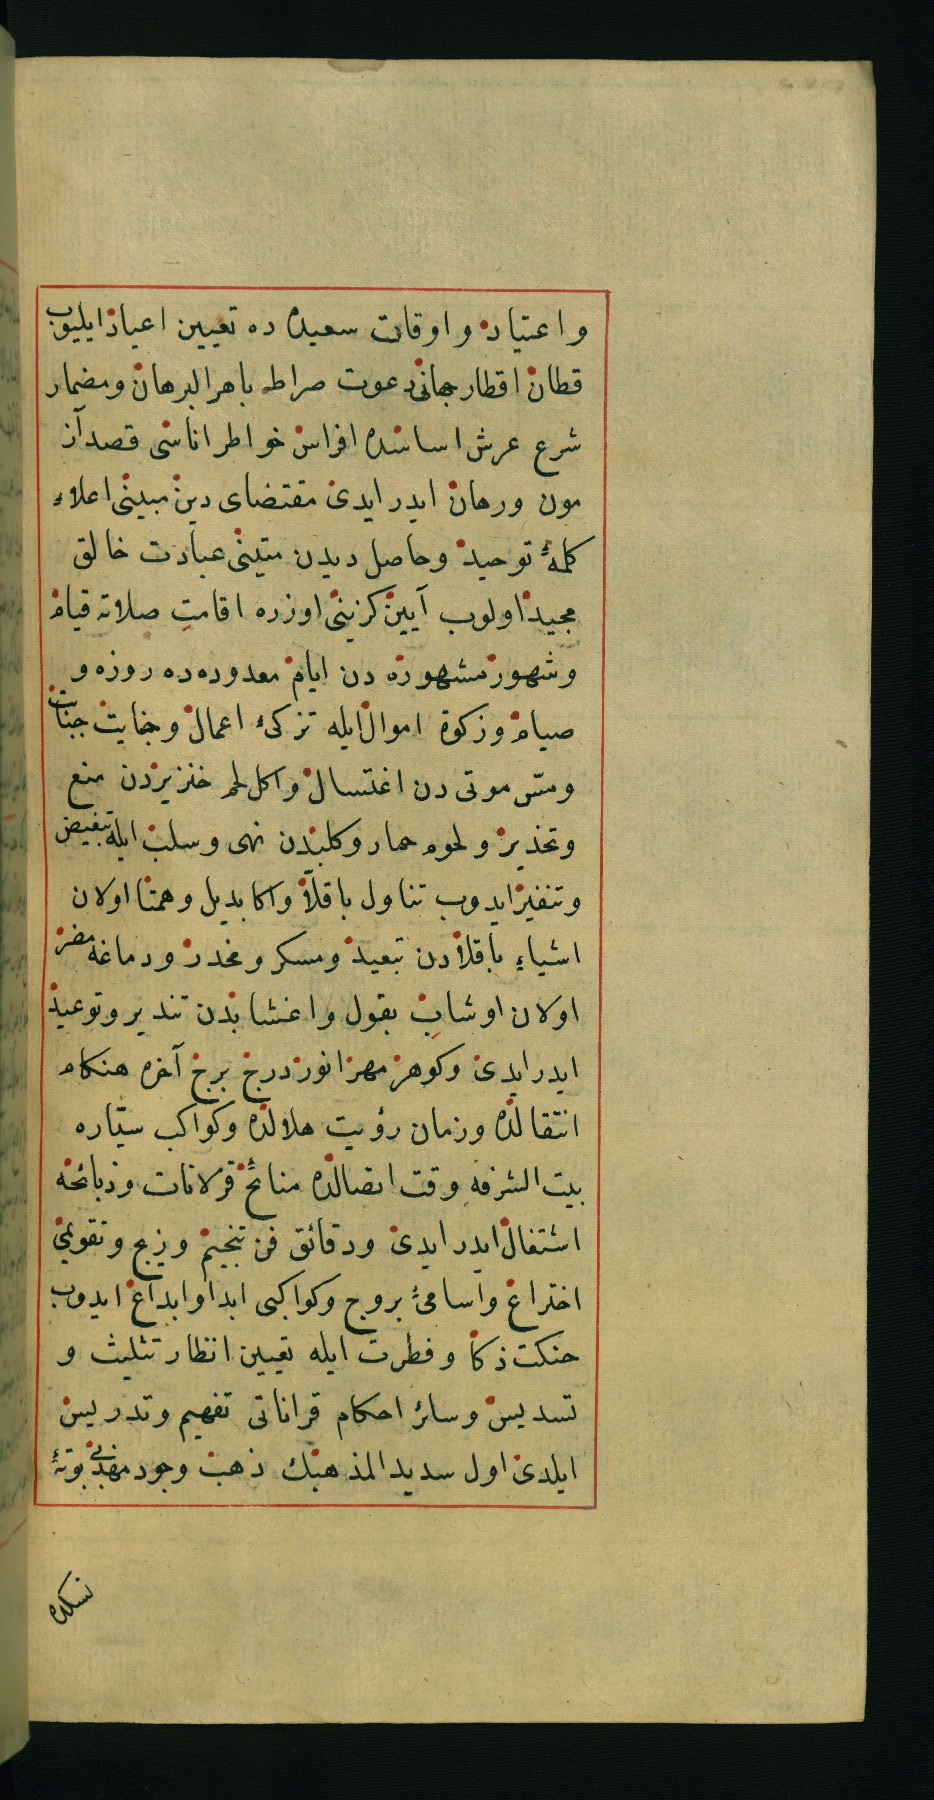 واعتیاد واوقات سعیده ده تعیین اعیاد ایلیوب
قطان اقطار جهانی دعوت صراط باهر البرهان ومضمار
شرع عرش اساسنده افراس خواطر اناسی قصد آز
مون ورهان ایدر ایدی مقتضای دین مبینی اعلاء
کلمهٔ توحید وحاصل دیدن متینی عبادت خالق
مجید اولوب آیین کزینی اوزره اقامت صلاته قیام
وشهور مشهوره دن ایام معدوده ده روزه و
صیام وزکوة اموال ایله تزکیهٔ اعمال وخیایت جنابت
ومس موتی دن اغتسال واکل لحم خنزیردن منع
وتحذیر ولحوم حمار وکلبدن نهی وسلب ایله تبغیض
وتنفیر ایدوب تناول باقلا واکا بدیل وهمتا اولان
اشیاء باقلادن تبعید ومسکر ومخدر ودماغه مضر
اولان اوشاب بقول واعشابدن تندیر وتوعید
ایدر ایدی وکوهر مهر انور درج برج آخره هنکام
انتقالده وزمان رؤیت هلالده وکواکب سیاره
بیت الشرفه وقت اتصالده منائح قرلانات وذبائحه
اشتغال ایدر ایدی ودقائق فن تنجیم وزیج وتقویمی
اختراع واسامیٔ بروج وکواکبی ابدا وابداع ایدوب
حنکت ذکا وفطرت ایله تعیین انظار تثلیث و
تسدیس وسائر احکام قراناتی تفهیم وتدریس
ایلدی اول سدید المذهبک ذهب وجود مهذبی بوتهٔ
نسکده